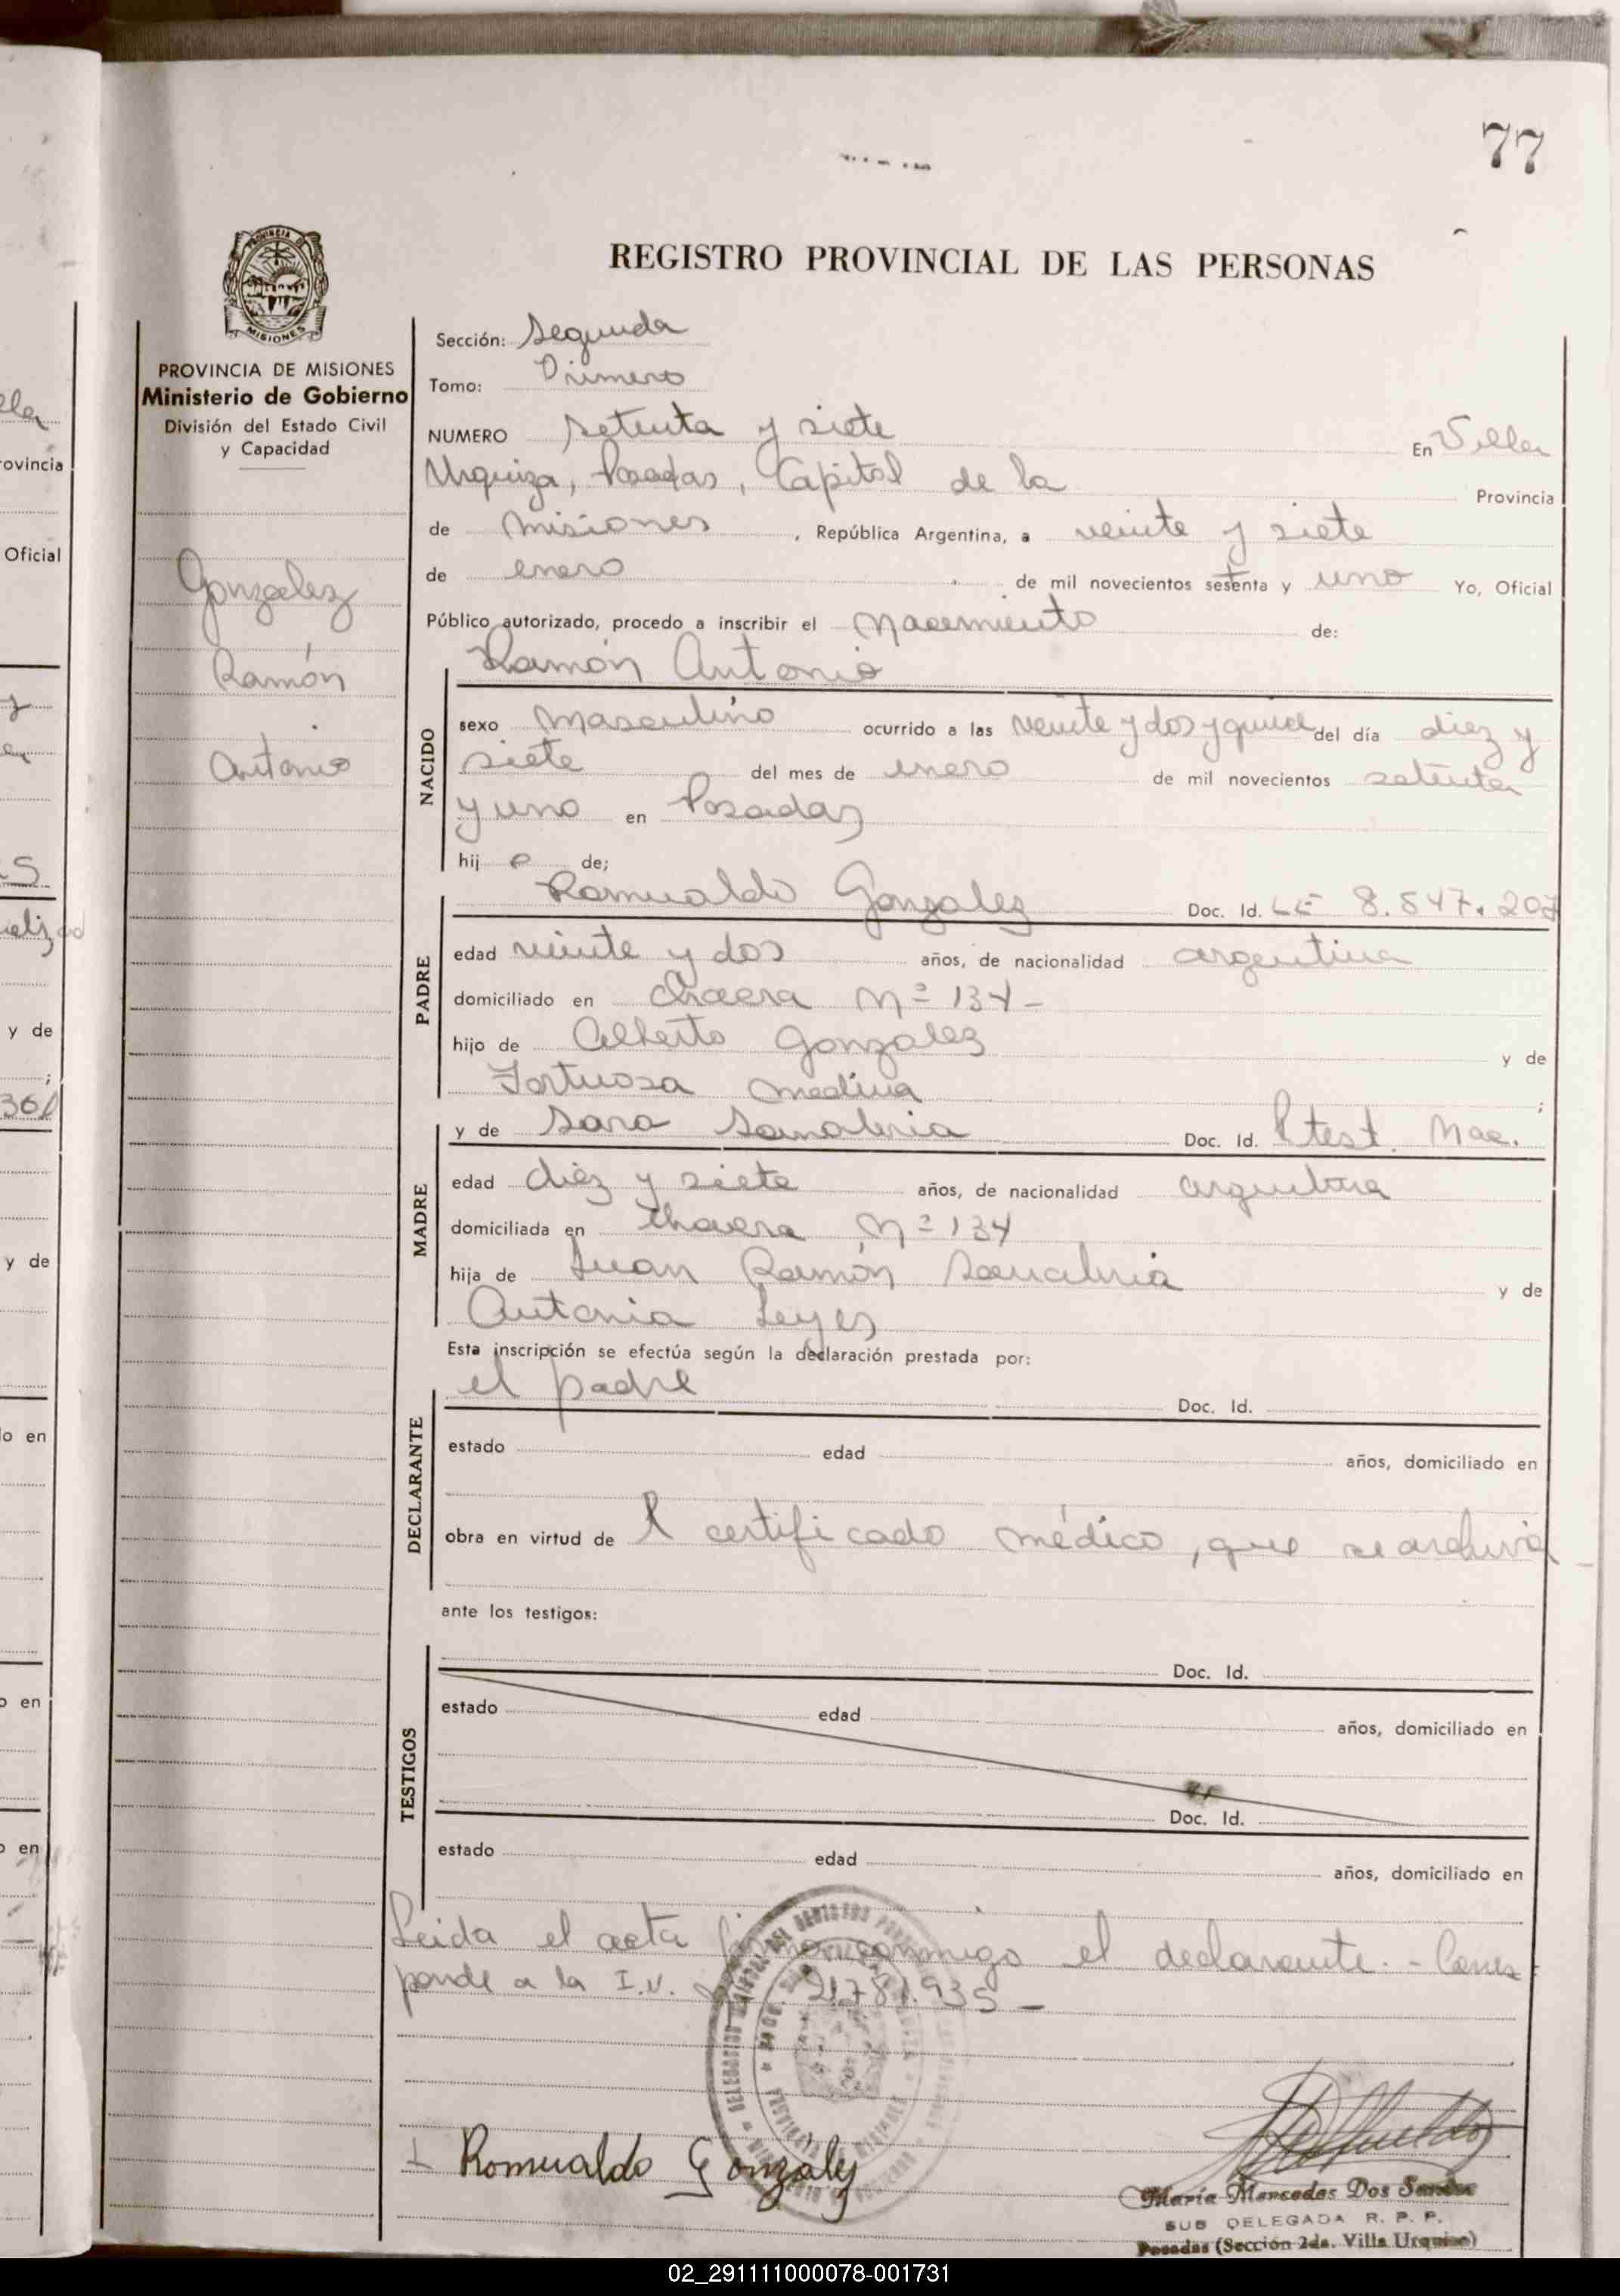 77
REGISTRO PROVINCIAL DE LAS PERSONAS
PROVINCIA DE MISIONES
Ministerio de Gobierno
División del Estado Civil
y Capacidad
Gonzalez
Ramón
Antonio
Sección: Segunda
Tomo: Primero
NUMERO setenta y siete En Villa
Urquiza, Posadas, Capital de la Provincia
de Misiones, República Argentina, a veinte y siete
de enero de mil novecientos sesenta y uno Yo, Oficial
Público autorizado, procedo a inscribir el Nacimiento de:
Ramón Antonio
NACIDO
sexo masculino ocurrido a las veinte y dos y quince del día diez y
siete del mes de enero de mil novecientos setenta
y uno en Posadas
hij o de;
Romualdo Gonzalez Doc. Id. LE 8.547.207
PADRE
edad veinte y dos años, de nacionalidad argentina
domiciliado en Chacra Nº 134-
hijo de Alberto Gonzalez y de
Fortuosa Medina ;
y de Sara Sanabria Doc. Id. Ptest. Nac.
MADRE
edad diez y siete años, de nacionalidad argentina
domiciliada en Chacra Nº 134
hija de Juan Ramón Sanabria y de
Antonia Leyes
Esta inscripción se efectúa según la declaración prestada por:
el padre Doc. Id.
DECLARANTE
estado edad años, domiciliado en
obra en virtud de l certificado médico, que se archiva
ante los testigos:
Doc. Id.
TESTIGOS
estado edad años, domiciliado en
Doc. Id.
estado edad años, domiciliado en
Leida el acta conmigo el declarante. - Corres
ponde a la I.V. 21.781.935 -
Romualdo Gonzalez
María Mercedes Dos Santos
SUB DELEGADA R. P. P.
Posadas (Sección 2da. Villa Urquiza)
02_291111000078-001731